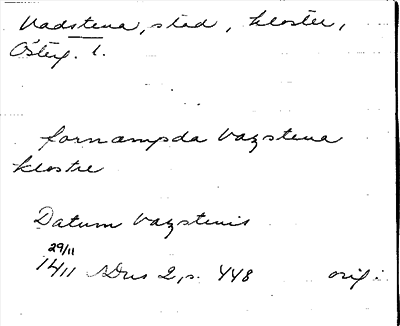 Vadstena, stad, kloster,
Österg. l.
fornämpda Vazstena
klostre
Datum Vazstenis
29/11
1411 SDns 2, s. 448 orig.